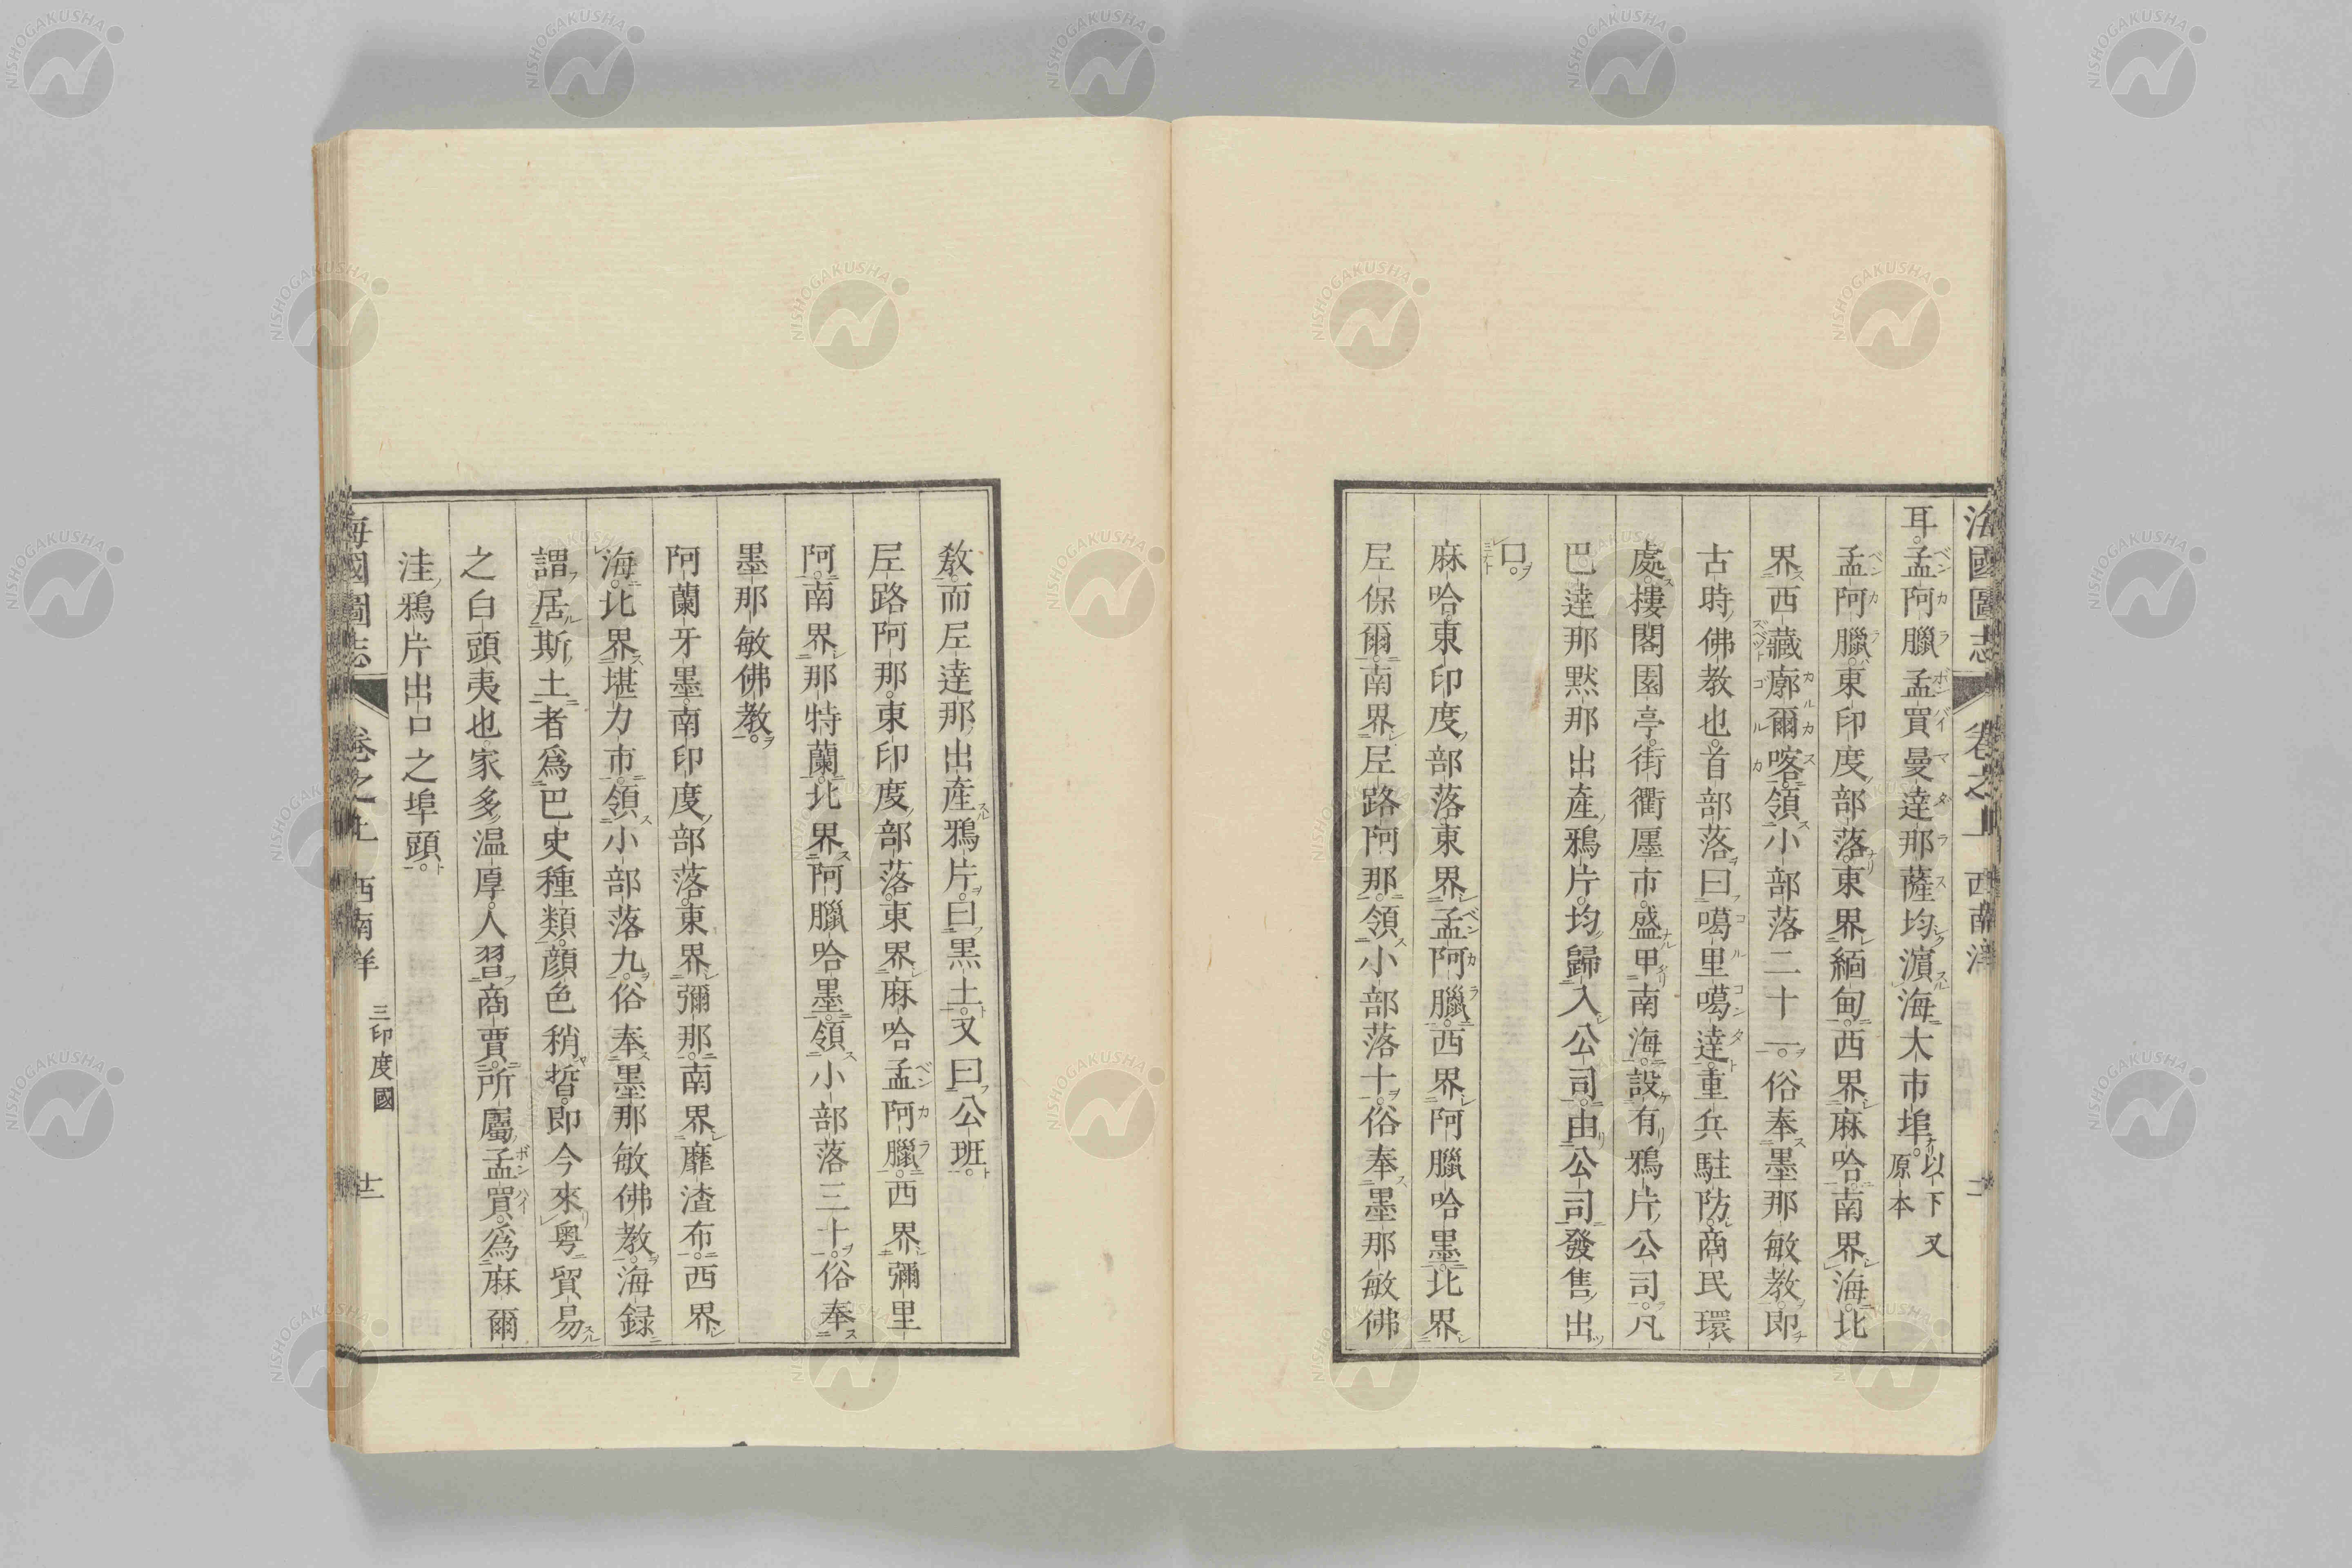 海國圖志 卷之十 西南洋
耳。孟阿臘孟買曼達那薩均濵海大市埠。以下又原本
孟阿臘。東印度部落。東界緬甸。西界麻哈。南界海。北
界西藏廓爾喀。領小部落二十一。俗奉墨那敏教。即
古時佛教也。首部落曰噶里噶達。重兵駐防。商民環
處。樓閣園亭。街衢㕓市。盛甲南海。設有鴉片公司。凡
巴達那默那出產鴉片。均歸入公司。由公司發售出
口。
麻哈。東印度部落。東界孟阿臘。西界阿臘哈墨。北界
𡊮保爾。南界𡊮路阿那。領小部落十。俗奉墨那敏佛
教。而𡊮達那出產鴉片。曰黒土。又曰公班。
𡊮路阿那。東印度部落。東界麻哈孟阿臘。西界彌里
阿。南界那特蘭。北界阿臘哈墨。領小部落三十。俗奉
墨那敏佛教。
阿蘭牙墨。南印度部落。東界彌那。南界靡渣布。西界
海。北界堪力市。領小部落九。俗奉墨那敏佛教。海録
謂居斯土者爲巴史種類。顔色稍晳。即今來粤貿易
之白頭夷也。家多溫厚。人習商賈。所屬孟買。爲麻爾
洼鴉片出口之埠頭。
海國圖志 卷之十 西南洋 三印度國 十二
NISHOGAKUSHA